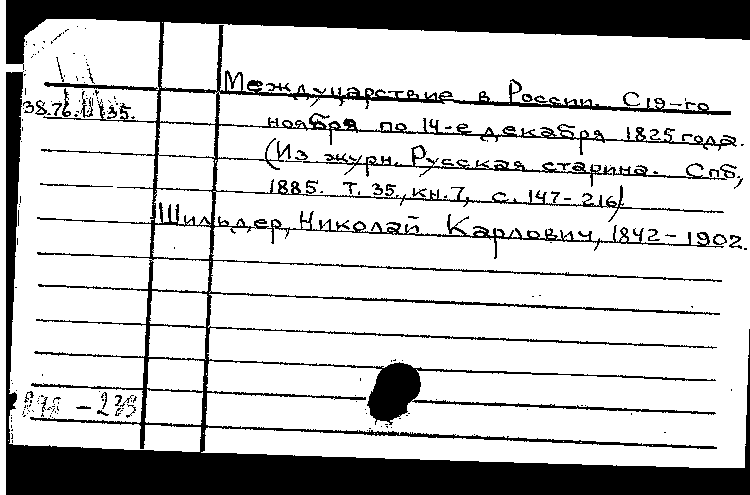 Междуцарствие в России. С 19-го
38.76.
ноября по 14-е декабря 1825 года.
(Из журн. Русская старина. Спб,
1885. Т. 35, кн. 7, с. 147-216)
Шильдер, Николай Карлович, 1842-1902.